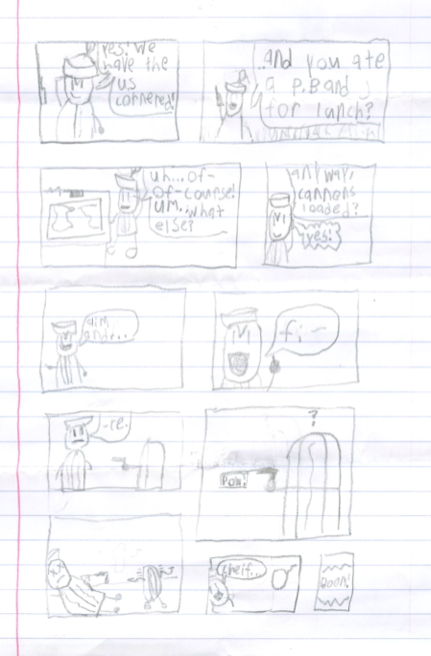 Yes! We
have the
US
cornered!
..and you ate
a P.B and J
for lunch?
uh...of-
of-course!
um..what
else?
anyway,
cannons
loaded?
yes!
aim
and...
fi-
-re.
?
POW!
BOOM!